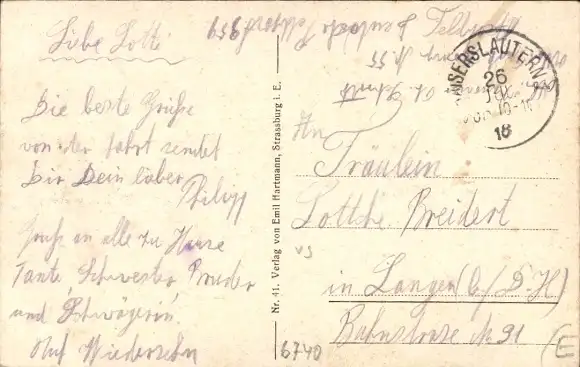 Liebe Lotti
Die beste Grüße
von der fahrt sendet
Dir Dein lieber
Philipp
Gruß an alle zu Hause
Tante, Schwester Bruder
und Schwägerin.
Auf Wiedersehn
Nr. 41. Verlag von Emil Hartmann, Strassburg i. E.
KAISERSLAUTERN
26
18
An
Fräulein
Lottche Breidert
in Langen (b/D-H)
Bahnstrase No 91
6740